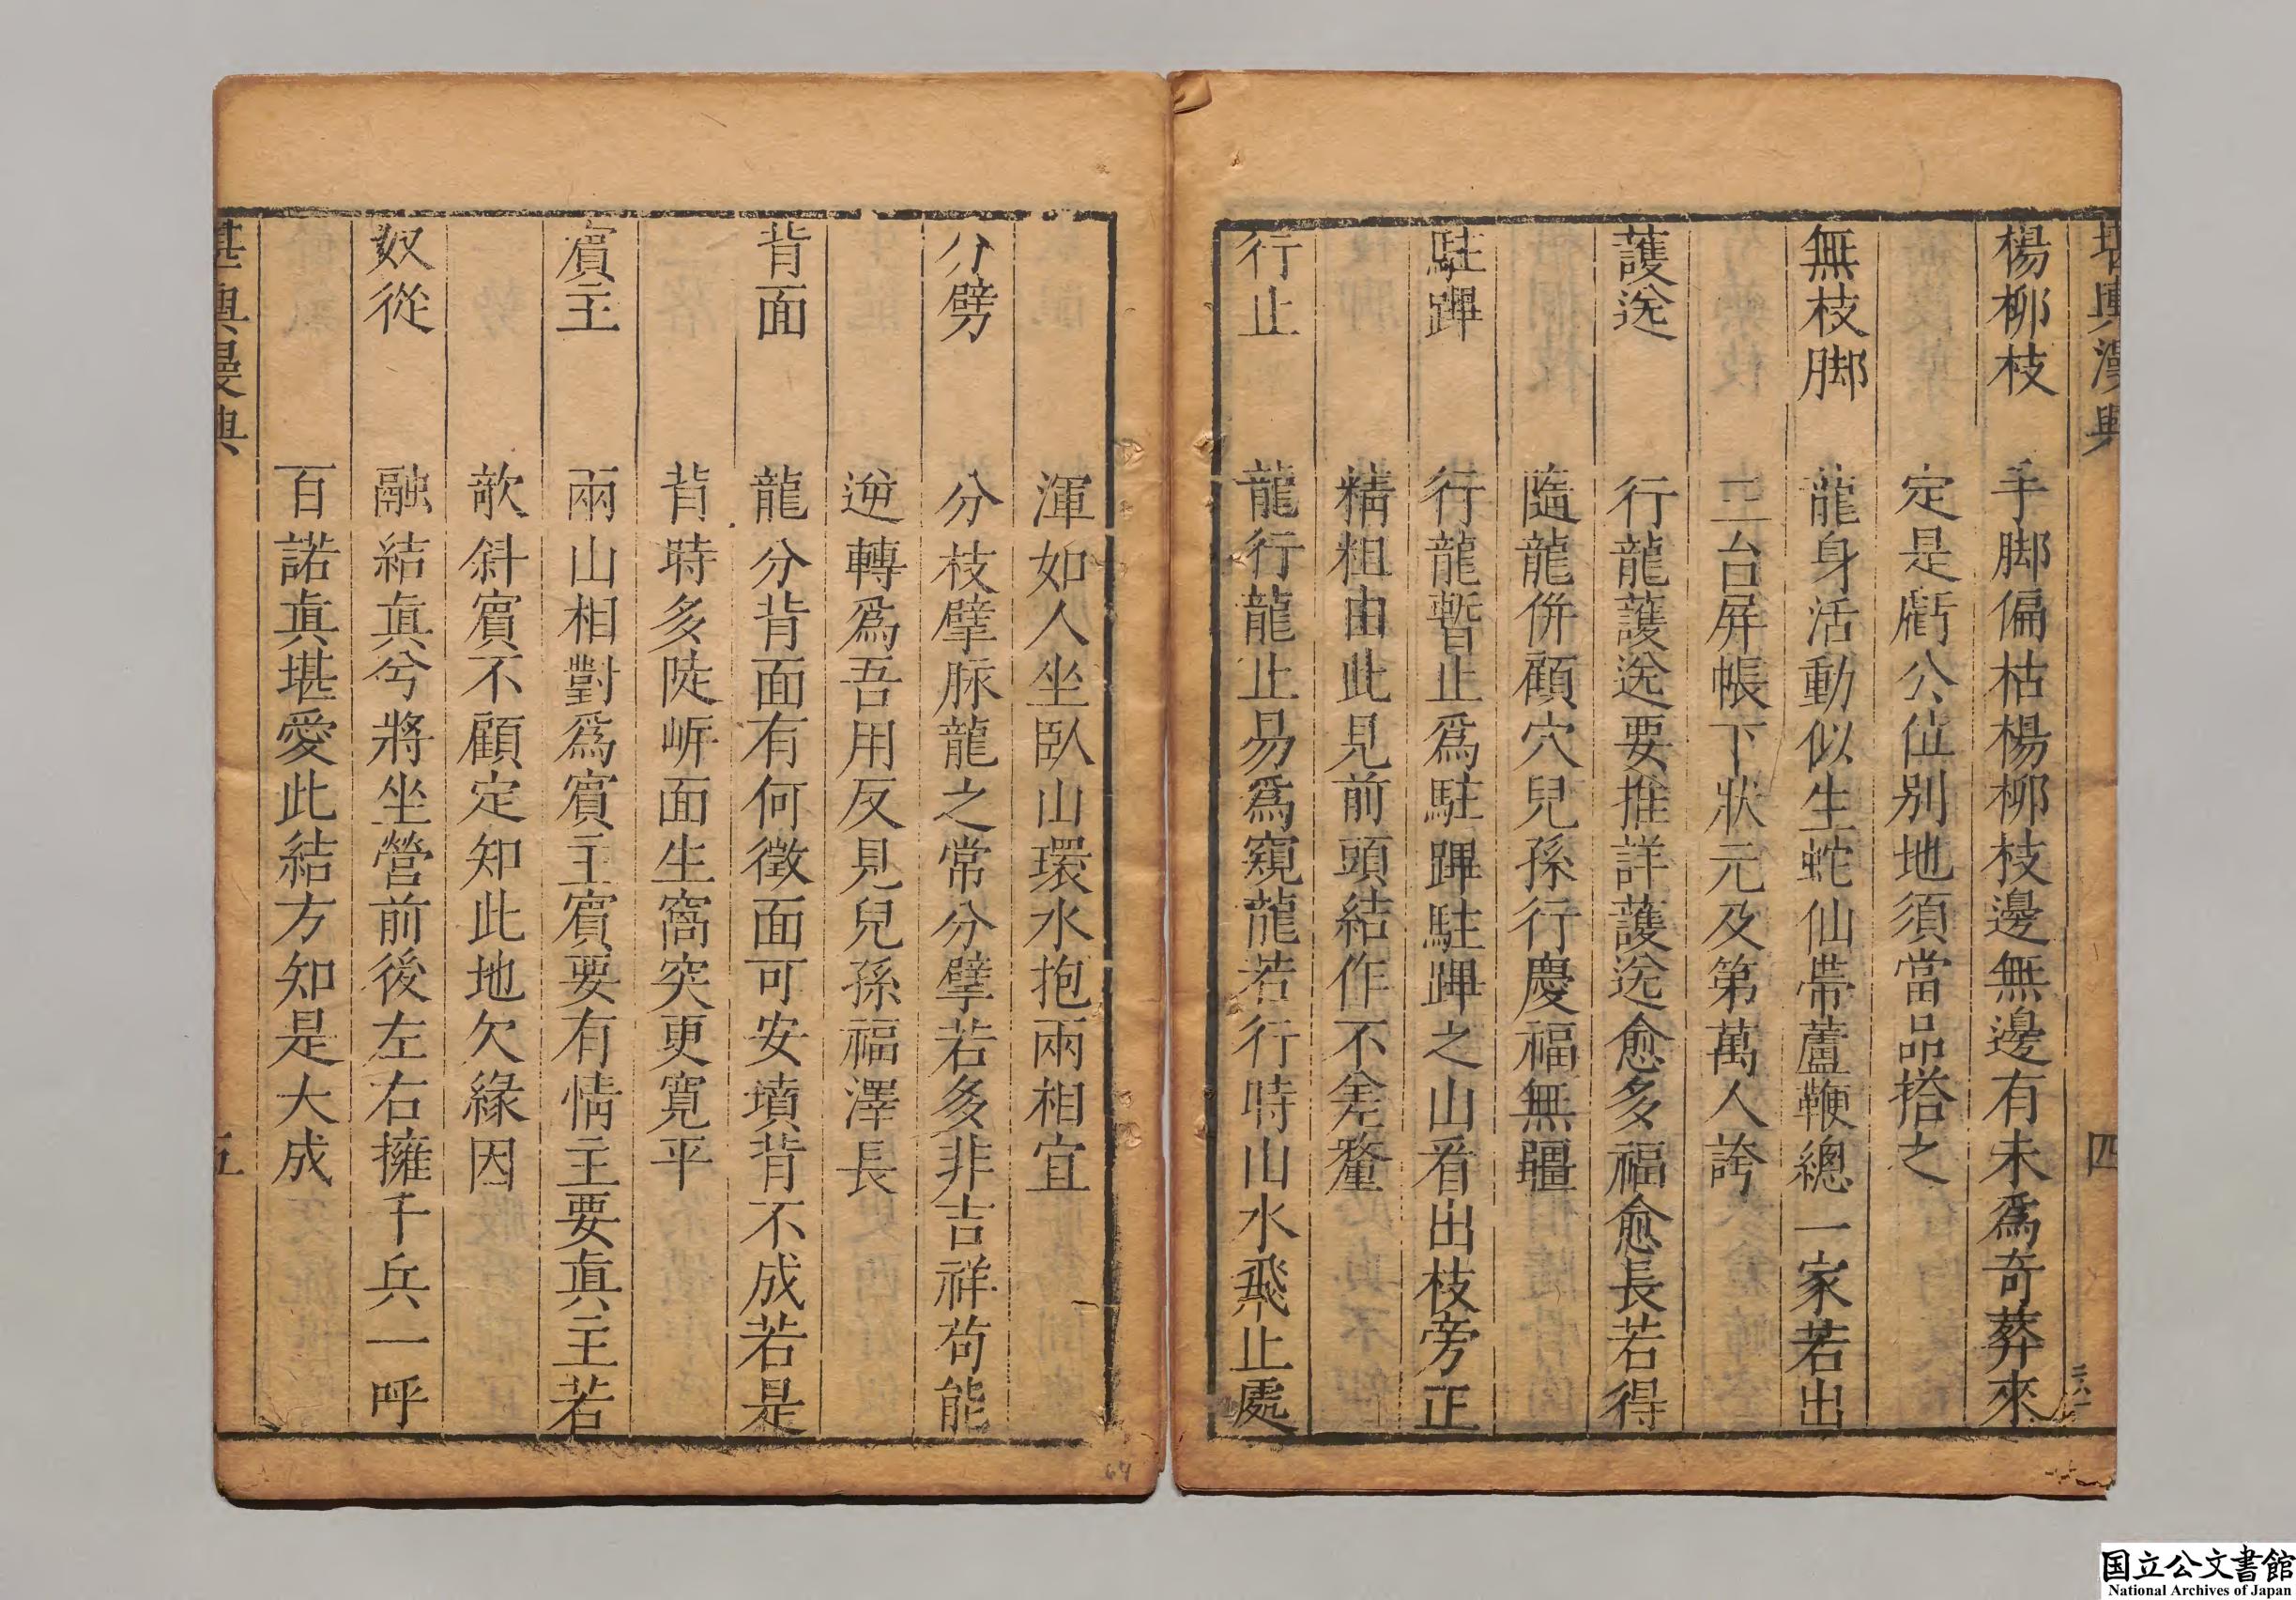 堪輿漫興　四
楊柳枝　手脚偏枯楊柳枝邊無邊有未爲奇葬來
定是虧公位别地須當品搭之
無枝脚　龍身活動似生蛇仙帶蘆鞭總一家若出
三台屏帳下狀元及第萬人誇
護送　行龍護送要推詳護送愈多福愈長若得
隨龍倂顧穴兒孫行慶福無疆
駐蹕　行龍暫止爲駐蹕駐蹕之山看出枝旁正
精粗由此見前頭結作不差釐
行止　龍行龍止易爲窺龍若行時山水飛止處
渾如人坐臥山環水抱兩相宜
分劈　分枝擘脉龍之常分擘若多非吉祥茍能
逆轉爲吾用反見兒孫福澤長
背面　龍分背面有何徵面可安墳背不成若是
背時多陡岍面生窩突更寛平
賔主　兩山相對爲賔主賔要有情主要眞主若
欹斜賔不顧定知此地欠緣因
奴從　融結眞兮將坐營前後左右擁千兵一呼
百諾眞堪愛此結方知是大成
堪輿漫興　五
64
国立公文書館
National Archives of Japan